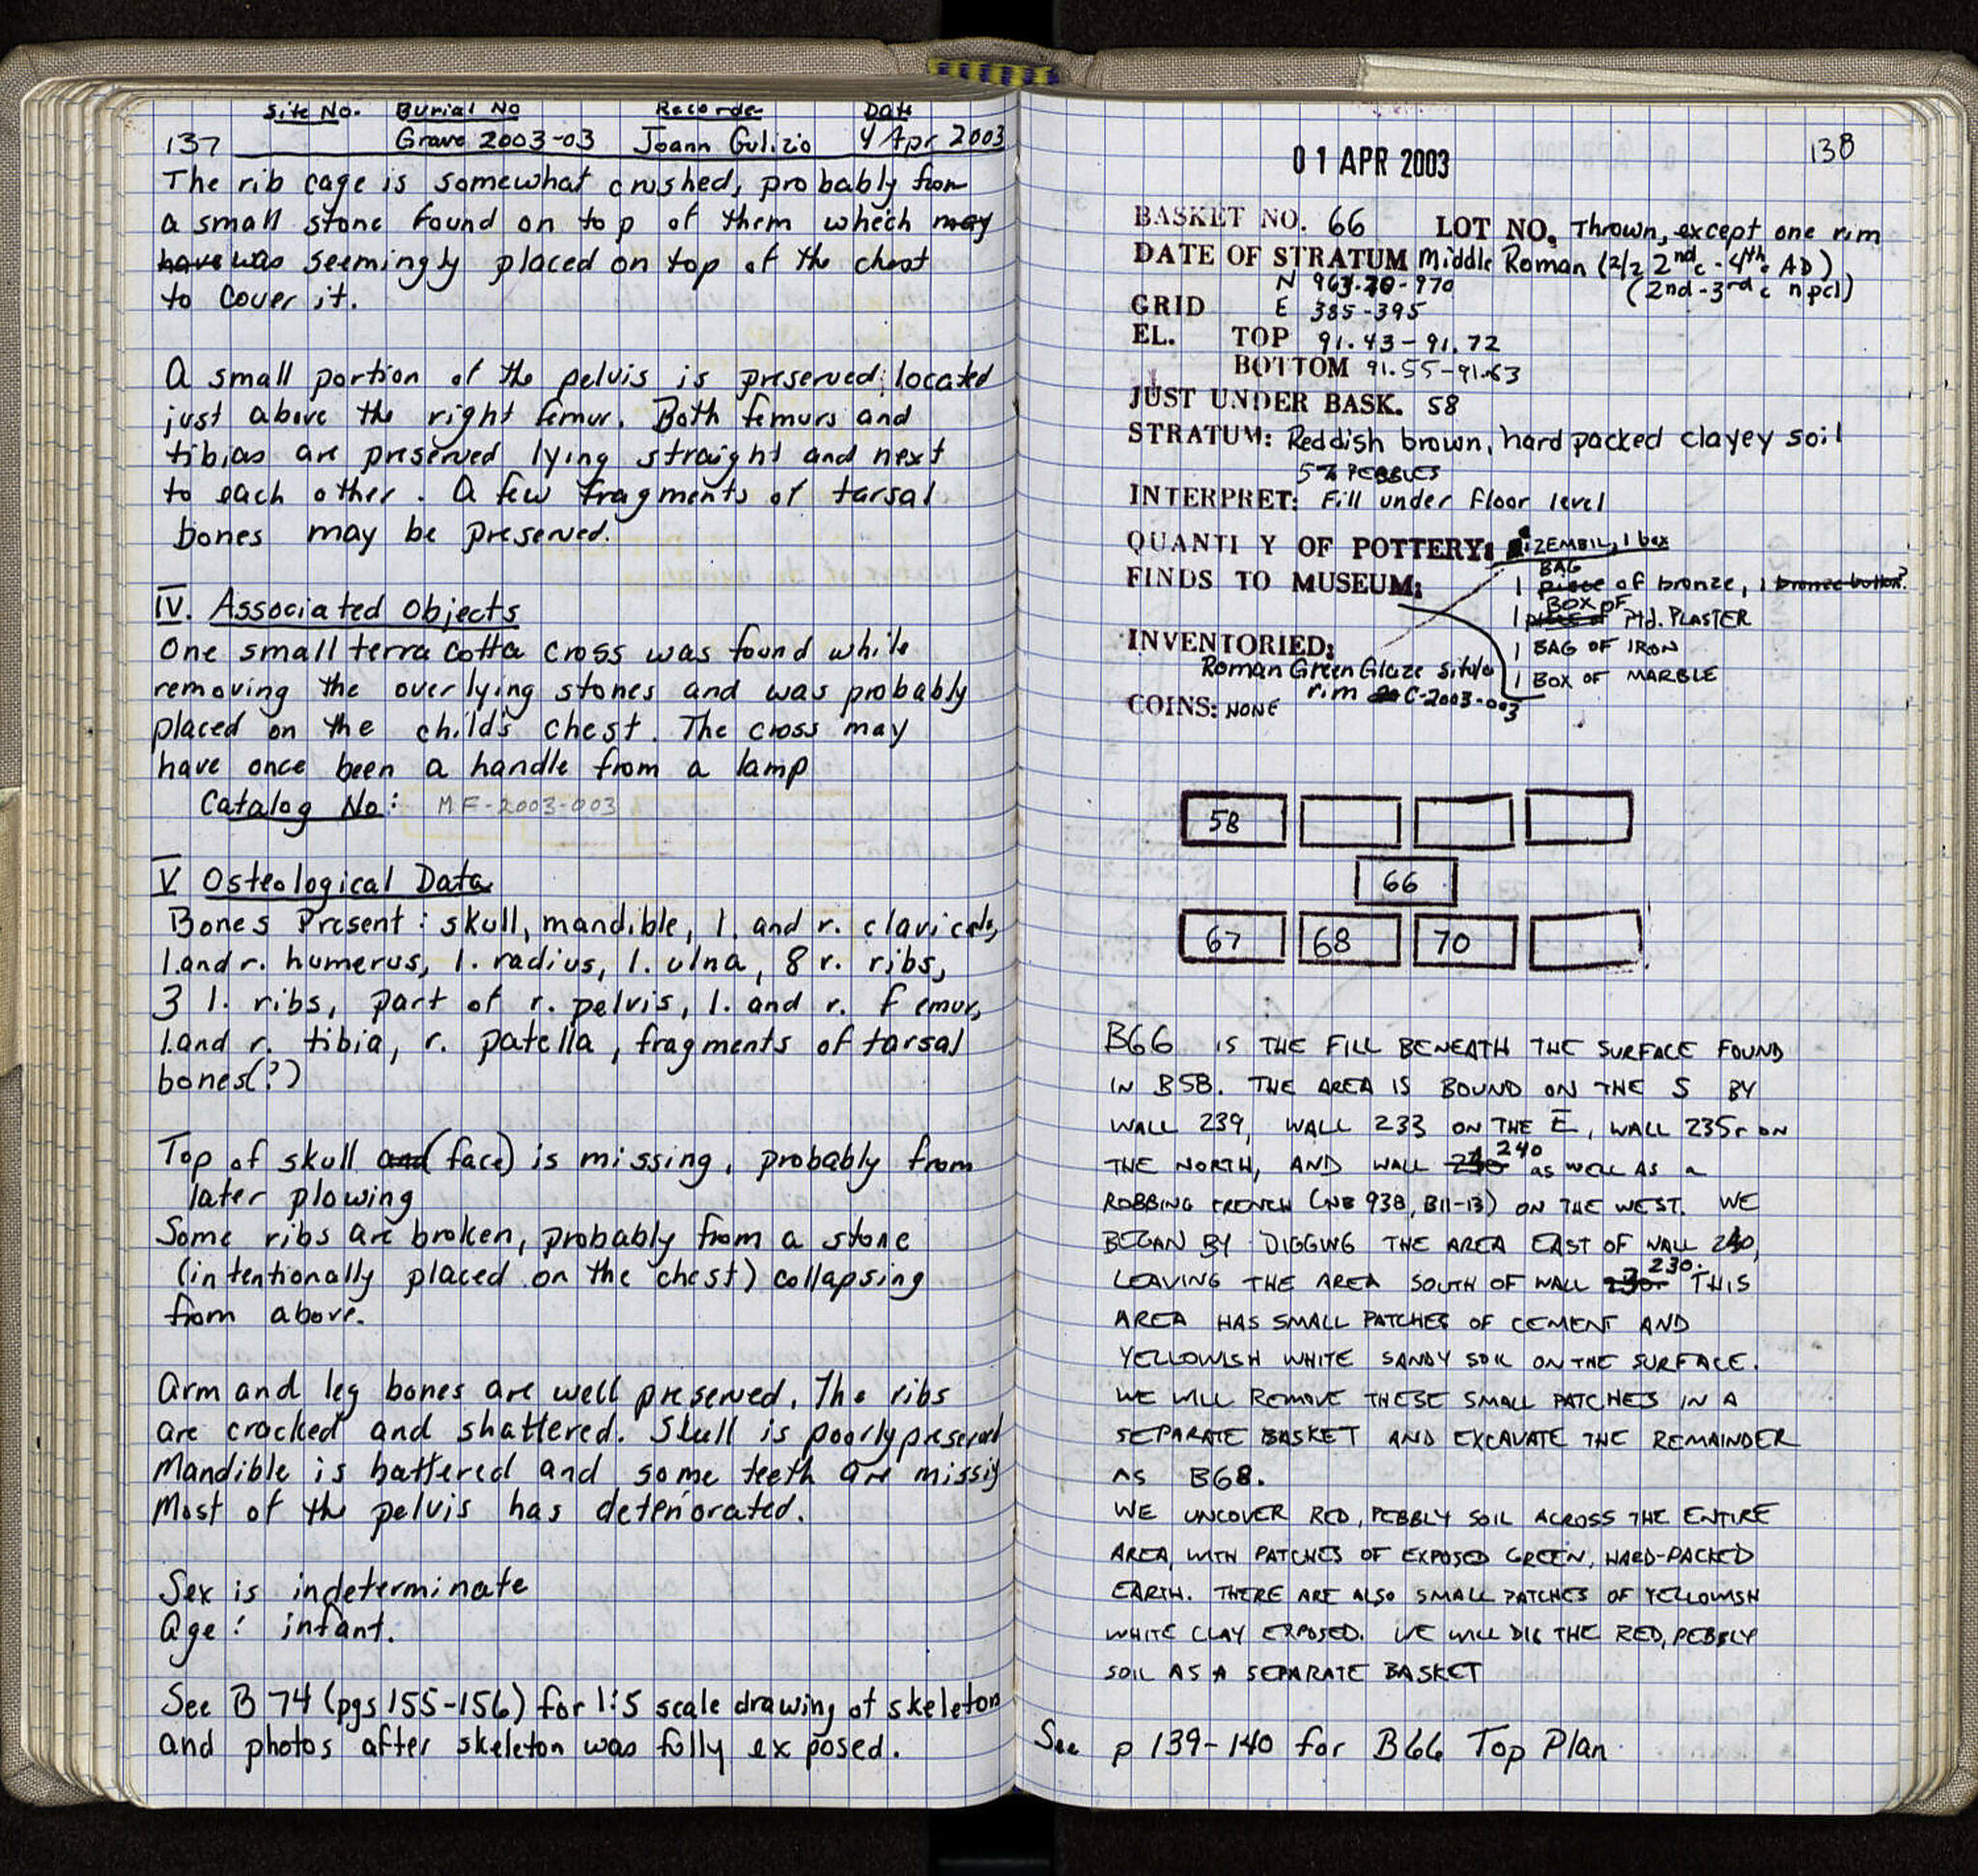 Site No. Burial No Recorder Date
137 Grave 2003-03 Joann Gulizio 4 Apr 2003
The rib cage is somewhat crushed, probably from
a small stone found on top of them which may
have was seemingly placed on top of the chest
to cover it.
A small portion of the pelvis is preserved, located
just above the right femur. Both femurs and
tibias are preserved lying straight and next
to each other. A few fragments of tarsal
bones may be preserved.
IV. Associated Objects
One small terracotta cross was found while
removing the overlying stones and was probably
placed on the child's chest. The cross may
have once been a handle from a lamp
Catalog No: MF-2003-003
V. Osteological Data
Bones Present: skull, mandible, l. and r. clavicals,
l. and r. humerus, l. radius, l. ulna, 8 r. ribs,
3 l. ribs, part of r. pelvis, l. and r. femur,
l. and r. tibia, r. patella, fragments of tarsal
bones(?)
Top of skull and (face) is missing, probably from
later plowing
Some ribs are broken, probably from a stone
(intentionally placed on the chest) collapsing
from above.
Arm and leg bones are well preserved. The ribs
are cracked and shattered. Skull is poorly preserved
Mandible is battered and some teeth are missing
Most of the pelvis has deteriorated.
Sex is indeterminate
Age: infant.
See B 74 (pgs 155-156) for 1:5 scale drawing of skeleton
and photos after skeleton was fully exposed.
138
01 APR 2003
BASKET NO. 66 LOT NO. Thrown, except one rim
DATE OF STRATUM Middle Roman (2/2 2nd c - 4th c AD)
(2nd-3rd c npcl)
N 963.20-970
GRID E 385-395
EL. TOP 91.43-91.72
BOTTOM 91.55-91.63
JUST UNDER BASK. 58
STRATUM: Reddish brown, hard packed clayey soil
5% PEBBLES
INTERPRET: Fill under floor level
QUANTI Y OF POTTERY: ZEMBIL, 1 box
FINDS TO MUSEUM: 1 piece BAG of bronze, 1 bronze button?
1 piece of BOX OF Ptd. PLASTER
INVENTORIED: 1 BAG OF IRON
Roman Green Glaze situla 1 BOX OF MARBLE
rim C-2003-003
COINS: NONE
58
66
67 68 70
B66 IS THE FILL BENEATH THE SURFACE FOUND
IN B58. THE AREA IS BOUND ON THE S BY
WALL 239, WALL 233 ON THE E, WALL 235 ON
THE NORTH, AND WALL 240 AS WELL AS A
ROBBING TRENCH (NB 938, B11-13) ON THE WEST. WE
BEGAN BY DIGGING THE AREA EAST OF WALL 240,
LEAVING THE AREA SOUTH OF WALL 230. THIS
AREA HAS SMALL PATCHES OF CEMENT AND
YELLOWISH WHITE SANDY SOIL ON THE SURFACE.
WE WILL REMOVE THESE SMALL PATCHES IN A
SEPARATE BASKET AND EXCAVATE THE REMAINDER
AS B68.
WE UNCOVER RED, PEBBLY SOIL ACROSS THE ENTIRE
AREA, WITH PATCHES OF EXPOSED GREEN, HARD-PACKED
EARTH. THERE ARE ALSO SMALL PATCHES OF YELLOWISH
WHITE CLAY EXPOSED. WE WILL DIG THE RED, PEBBLY
SOIL AS A SEPARATE BASKET
See p 139-140 for B66 Top Plan